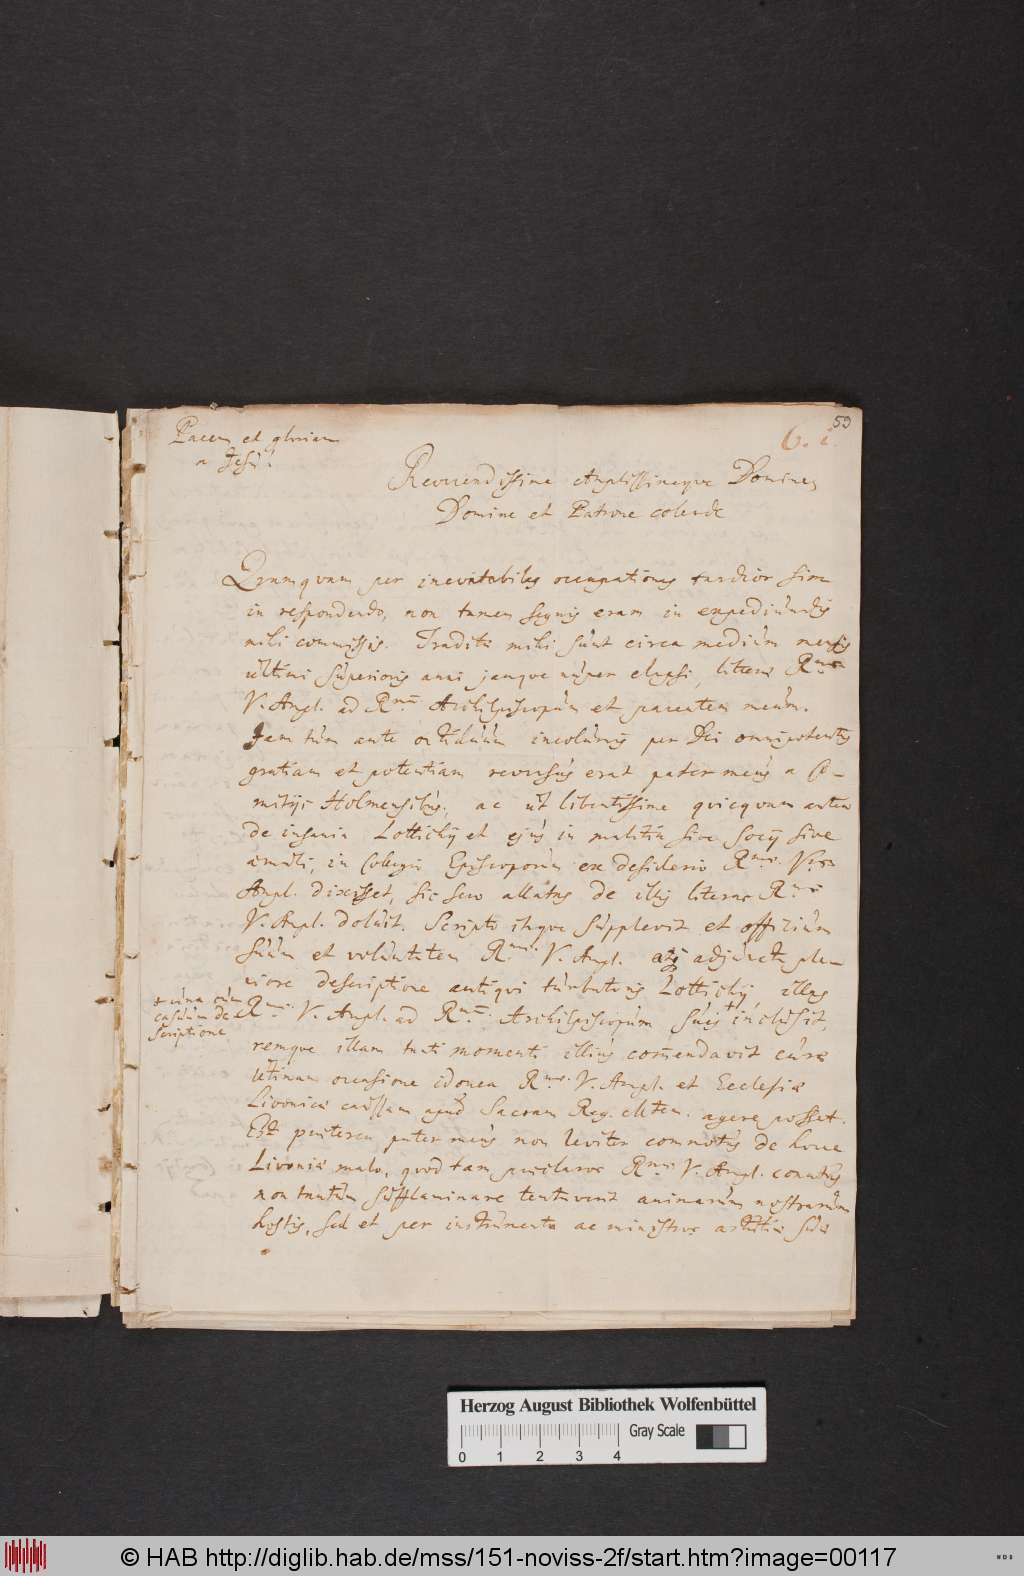 Pacem et gloriam
a Jesu!
59
6. i.
Reverendissime Amplissimeque Domine,
Domine et Patrone colende
Qvamqvam per inevitabiles occupationes tardior sim
in respondendo, non tamen segnis eram in expediundis
mihi commissis. Traditæ mihi sunt circa medium mensis
ultimi superioris anni jamqve nuper elapsi, literæ Rmæ
V. Ampl. ad Rmū Archiepiscopum et parentem meum.
Jam tum ante octiduum incolumis per Dei omnipotentis
gratiam et potentiam reversus erat pater meus a Co-
mitijs Holmensibus, ac ut libentissime qvicqvam antea
de insania Lottichij et ejus in malitia sive socij sive
æmuli, in Collegio Episcoporum ex desiderio Rmæ. Vræ
Ampl. dixisset, sic sero allatas de illis literas Rmæ
V. Ampl. doluit. Scripto itaqve supplevit et officium
suum et voluntatem Rmæ. V. Ampl. adjuncta ple-
niore descriptione antiqui turbatoris Lottichij, illas
+ una cum
casuum de-
scriptione
Rmæ. V. Ampl. ad Rmū. Archiepiscopum suis + inclusit,
remqve illam tanti momenti illius com̄endavit curæ
ut
occasione idonea Rmæ. V. Ampl. et Ecclesiæ
Livonicæ caussam apud Sacram Reg. Mtem. agere posset.
Est præterea pater meus non leviter commotus de hoc
Livoniæ malo, qvod tam præclaros Rmæ V. Ampl. conatus
non tantum sufflaminare tentaverit animarum nostrarum
hostis, sed et per instrumenta ac ministros astutiæ suæ
Herzog August Bibliothek Wolfenbüttel
Gray Scale
0 1 2 3 4
© HAB http://diglib.hab.de/mss/151-noviss-2f/start.htm?image=00117